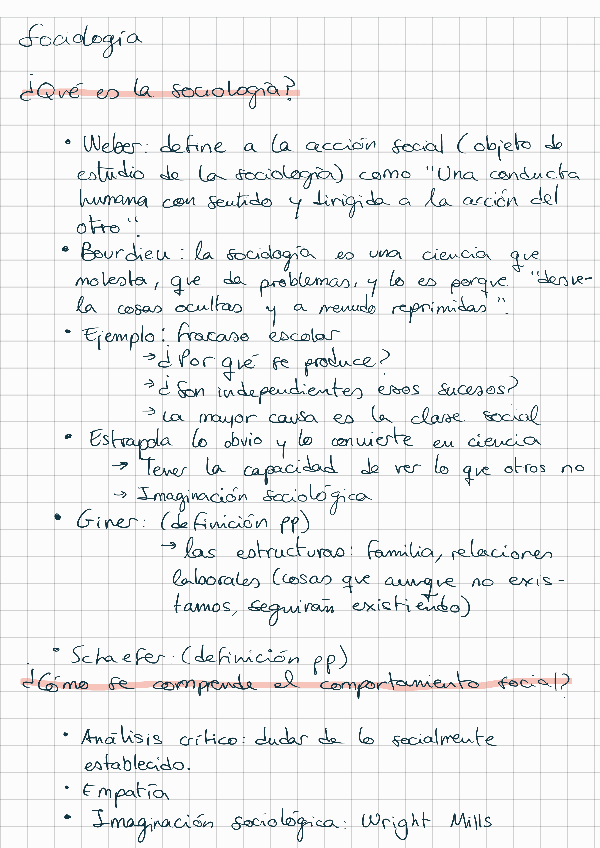 Sociología
¿Qué es la sociología?
• Weber: define a la acción social (objeto de
estudio de la sociología) como "Una conducta
humana con sentido y dirigida a la acción del
otro".
• Bourdieu: la sociología es una ciencia que
molesta, que da problemas, y lo es porque "desve-
la cosas ocultas y a menudo reprimidas".
• Ejemplo: fracaso escolar
→ ¿Por qué se produce?
→ ¿Son independientes esos sucesos?
→ La mayor causa es la clase social
• Estrapola lo obvio y lo convierte en ciencia
→ Tener la capacidad de ver lo que otros no
→ Imaginación sociológica
• Giner: (definición pp)
→ las estructuras: familia, relaciones
laborales (cosas que aunque no exis-
tamos, seguirán existiendo)
• Schaefer: (definición pp)
¿Cómo se comprende el comportamiento social?
• Análisis crítico: dudar de lo socialmente
establecido.
• Empatía
• Imaginación sociológica: Wright Mills